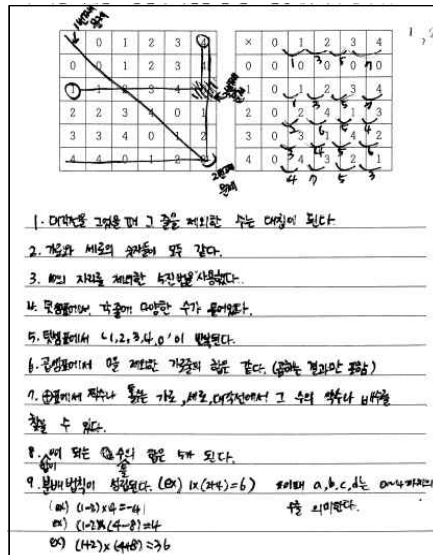 1번째 문제
0 1 2 3 4
0 0 1 2 3 4
1 1 2 3 4
2 2 3 4 0 1
3 3 4 0 1 2
4 4 0 1 2
2번째 문제
× 0 1 2 3 4
0 0 0 0 0 0
1 0 1 2 3 4
2 0 2 4 1 3
3 0 3 1 4 2
4 0 4 3 2 1
1. 대각선을 그었을 때 그 줄을 제외한 수는 대칭이 된다.
2. 가로와 세로의 숫자들이 모두 같다.
3. 자리를 제외한 5진법을 사용했다.
4. 덧셈표에서 각 줄에 다양한 수가 들어있다.
5. 덧셈표에서 '1, 2, 3, 4, 0'이 반복된다.
6. 곱셈표에서 0을 제외한 가로줄의 합은 같다. (곱하는 결과만 포함)
7. ⊕표에서 짝수나 홀는 가로, 세로, 대각선에서 그 수의 짝수나 배수를
찾을 수 있다.
8. 되는 수의 합은 5가 된다.
9. 분배법칙이 성립된다. (ex) 1×(2+4)=6) a, b, c, d는 0~4까지의
(ex) (1-2)×4=-4) 수를 의미한다.
ex) (1-2)×(4-8)=4
ex) (1+2)×(4+8)=36